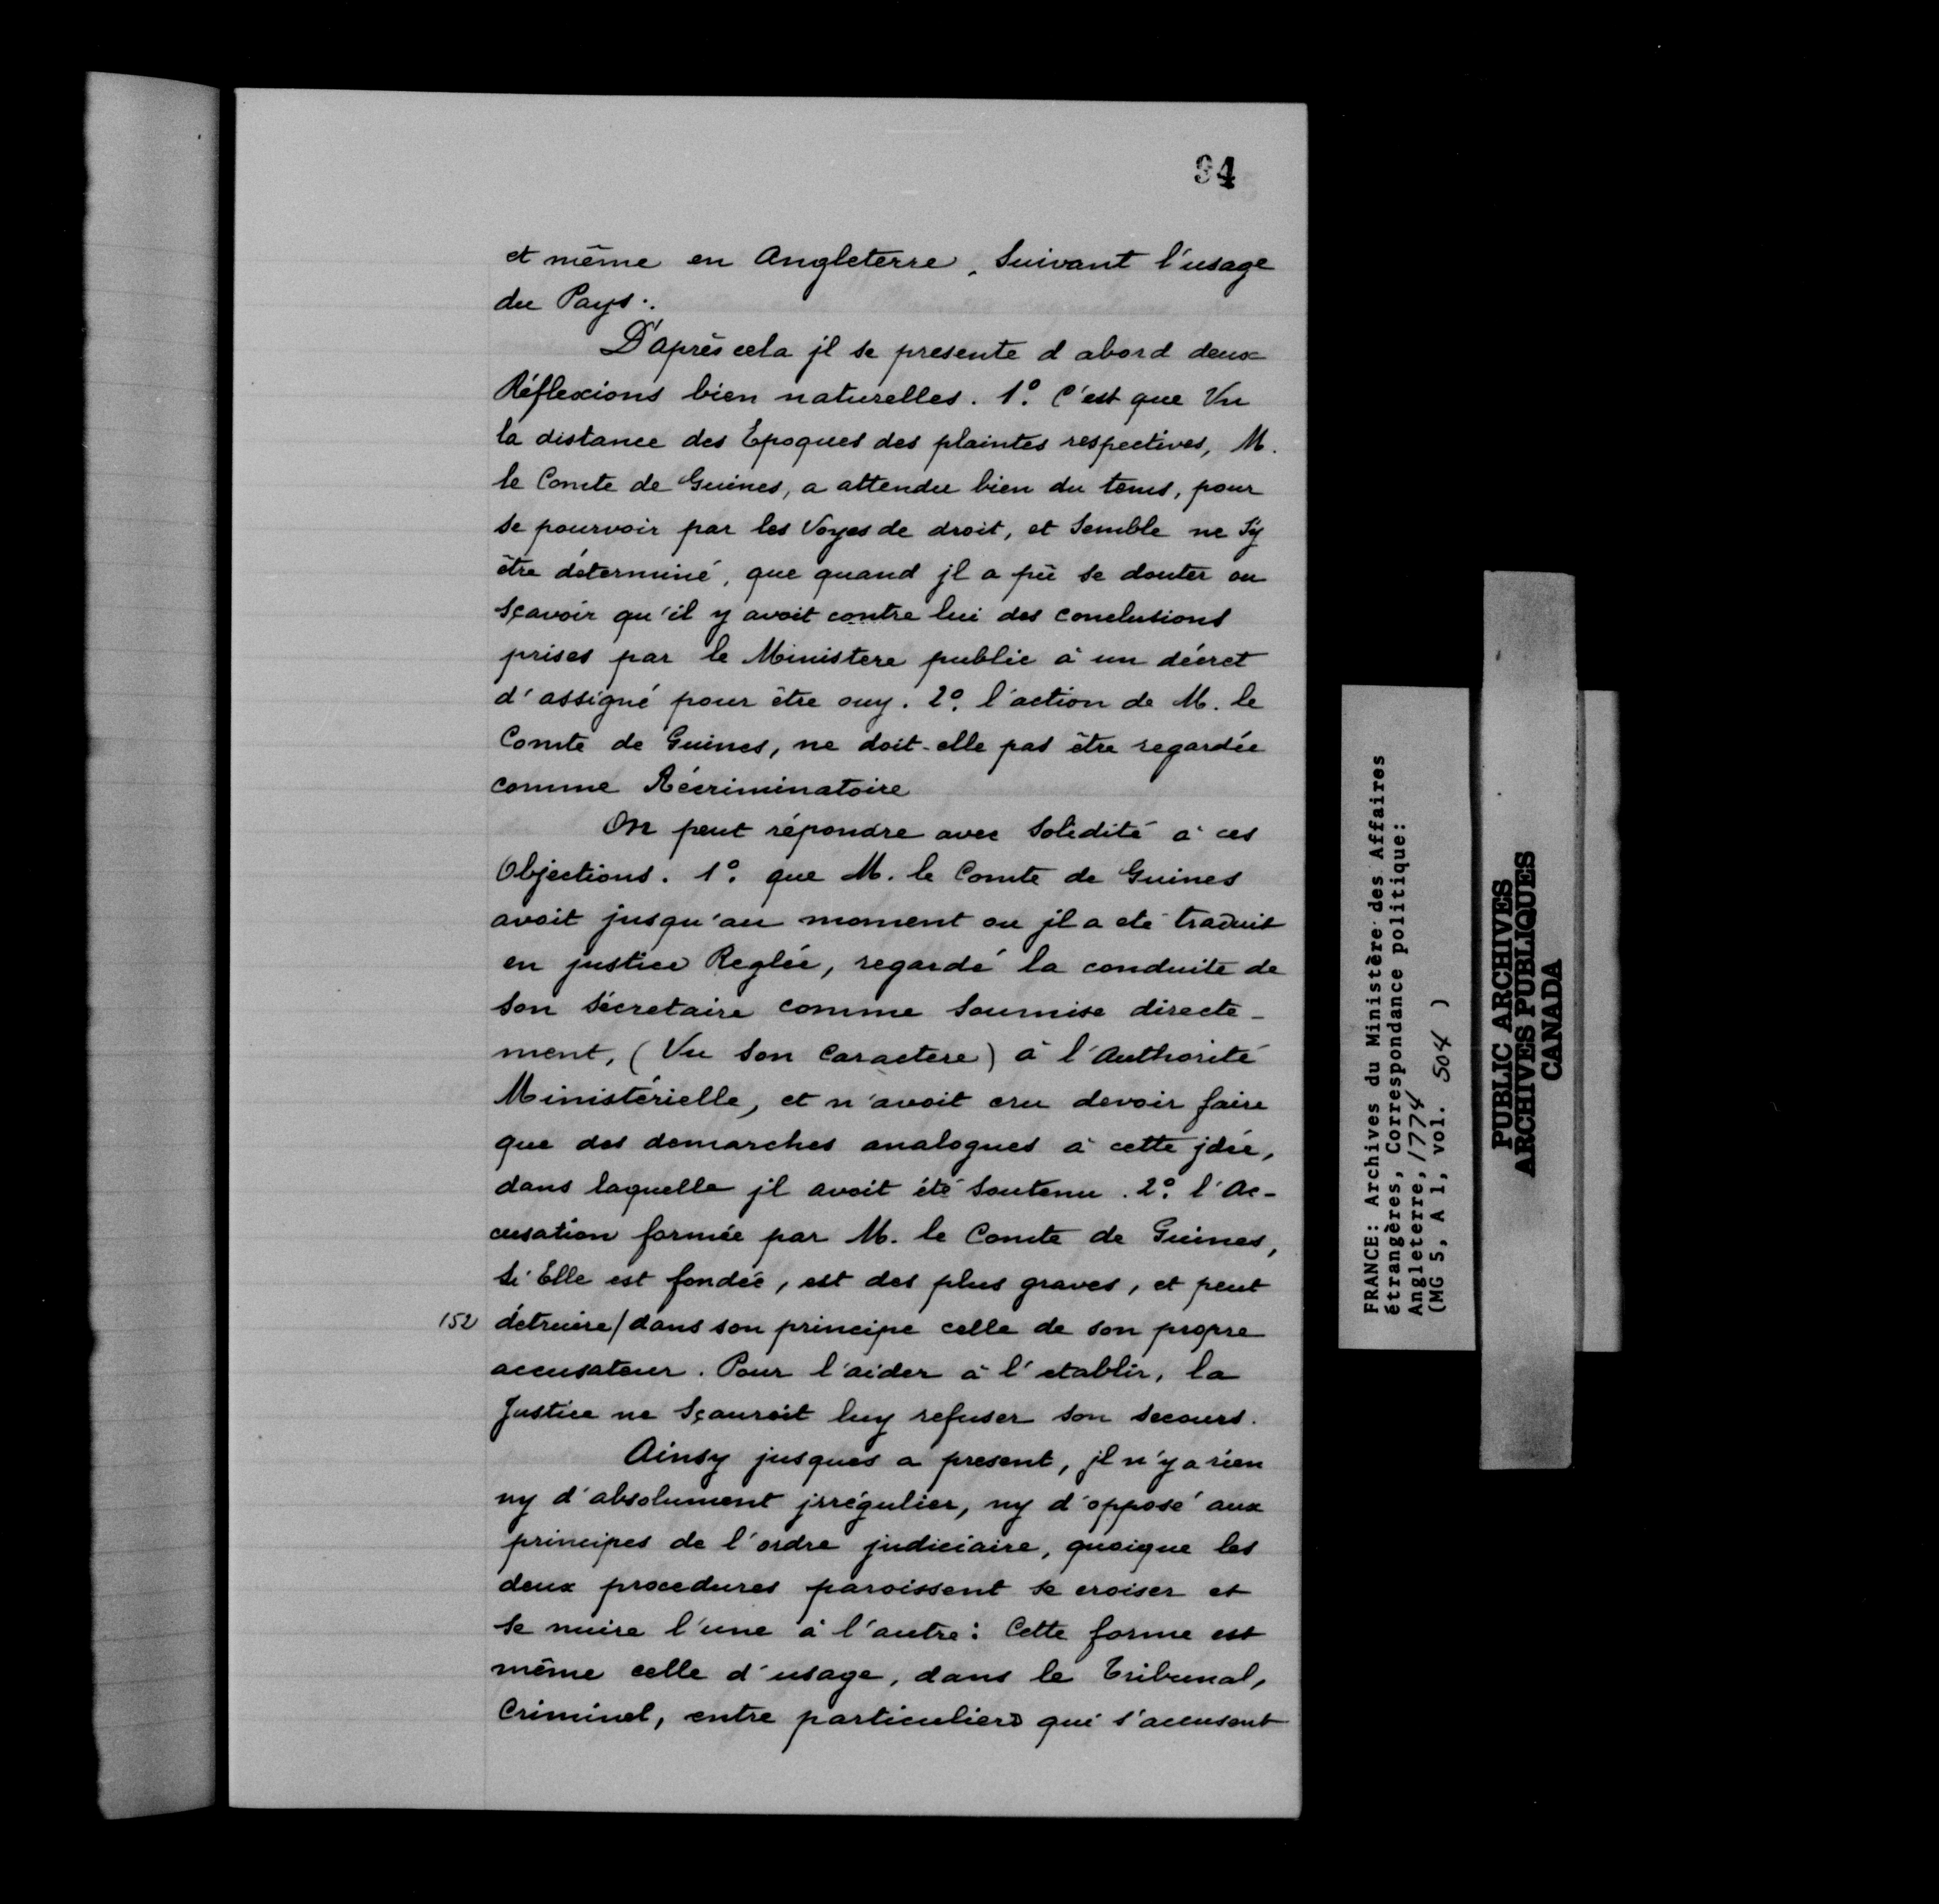 34
et même en Angleterre, Suivant l'usage
du Pays.
D'après cela jl se presente d abord deux
Réflexions bien naturelles. 1º. C'est que Vu
la distance des Epoques des plaintes respectives, M.
le Comte de Guines, a attendu bien du tems, pour
se pourvoir par les Voyes de droit, et Semble ne S'y
être déterminé, que quand jl a pû se douter ou
Sçavoir qu'il y avoit contre lui des conclusions
prises par le Ministere public à un décret
d'assigné pour être ouy. 2º. l'action de M. le
Comte de Guines, ne doit-elle pas être regardée
comme Récriminatoire
On peut répondre avec Solidité à ces
Objections. 1º. que M. le Comte de Guines
avoit jusqu'au moment ou jl a eté traduit
en justice Reglée, regardé la conduite de
son Sécretaire comme Soumise directe-
ment, (Vu Son Caractere) à l'Authorité
Ministérielle, et n'avoit cru devoir faire
que des demarches analogues à cette jdée,
dans laquelle jl avoit été Soutenu. 2º. l'Ac-
cusation formée par M. le Comte de Guines,
Si Elle est fondée, est des plus graves, et peut
152 détruire/dans son principe celle de son propre
accusateur. Pour l'aider à l'etablir, la
Justice ne Sçauroit luy refuser son secours.
Ainsy jusques a present, jl n'y a rien
ny d'absolument jrrégulier, ny d'opposé aux
principes de l'ordre judiciaire, quoique les
deux procedures paroissent se croiser et
se nuire l'une à l'autre: Cette forme est
même celle d'usage, dans le Tribunal,
Criminel, entre particuliers qui s'accusent
FRANCE: Archives du Ministère des Affaires
étrangères, Correspondance politique:
Angleterre, 1774
(MG 5, A 1, vol. 504 )
PUBLIC ARCHIVES
ARCHIVES PUBLIQUES
CANADA